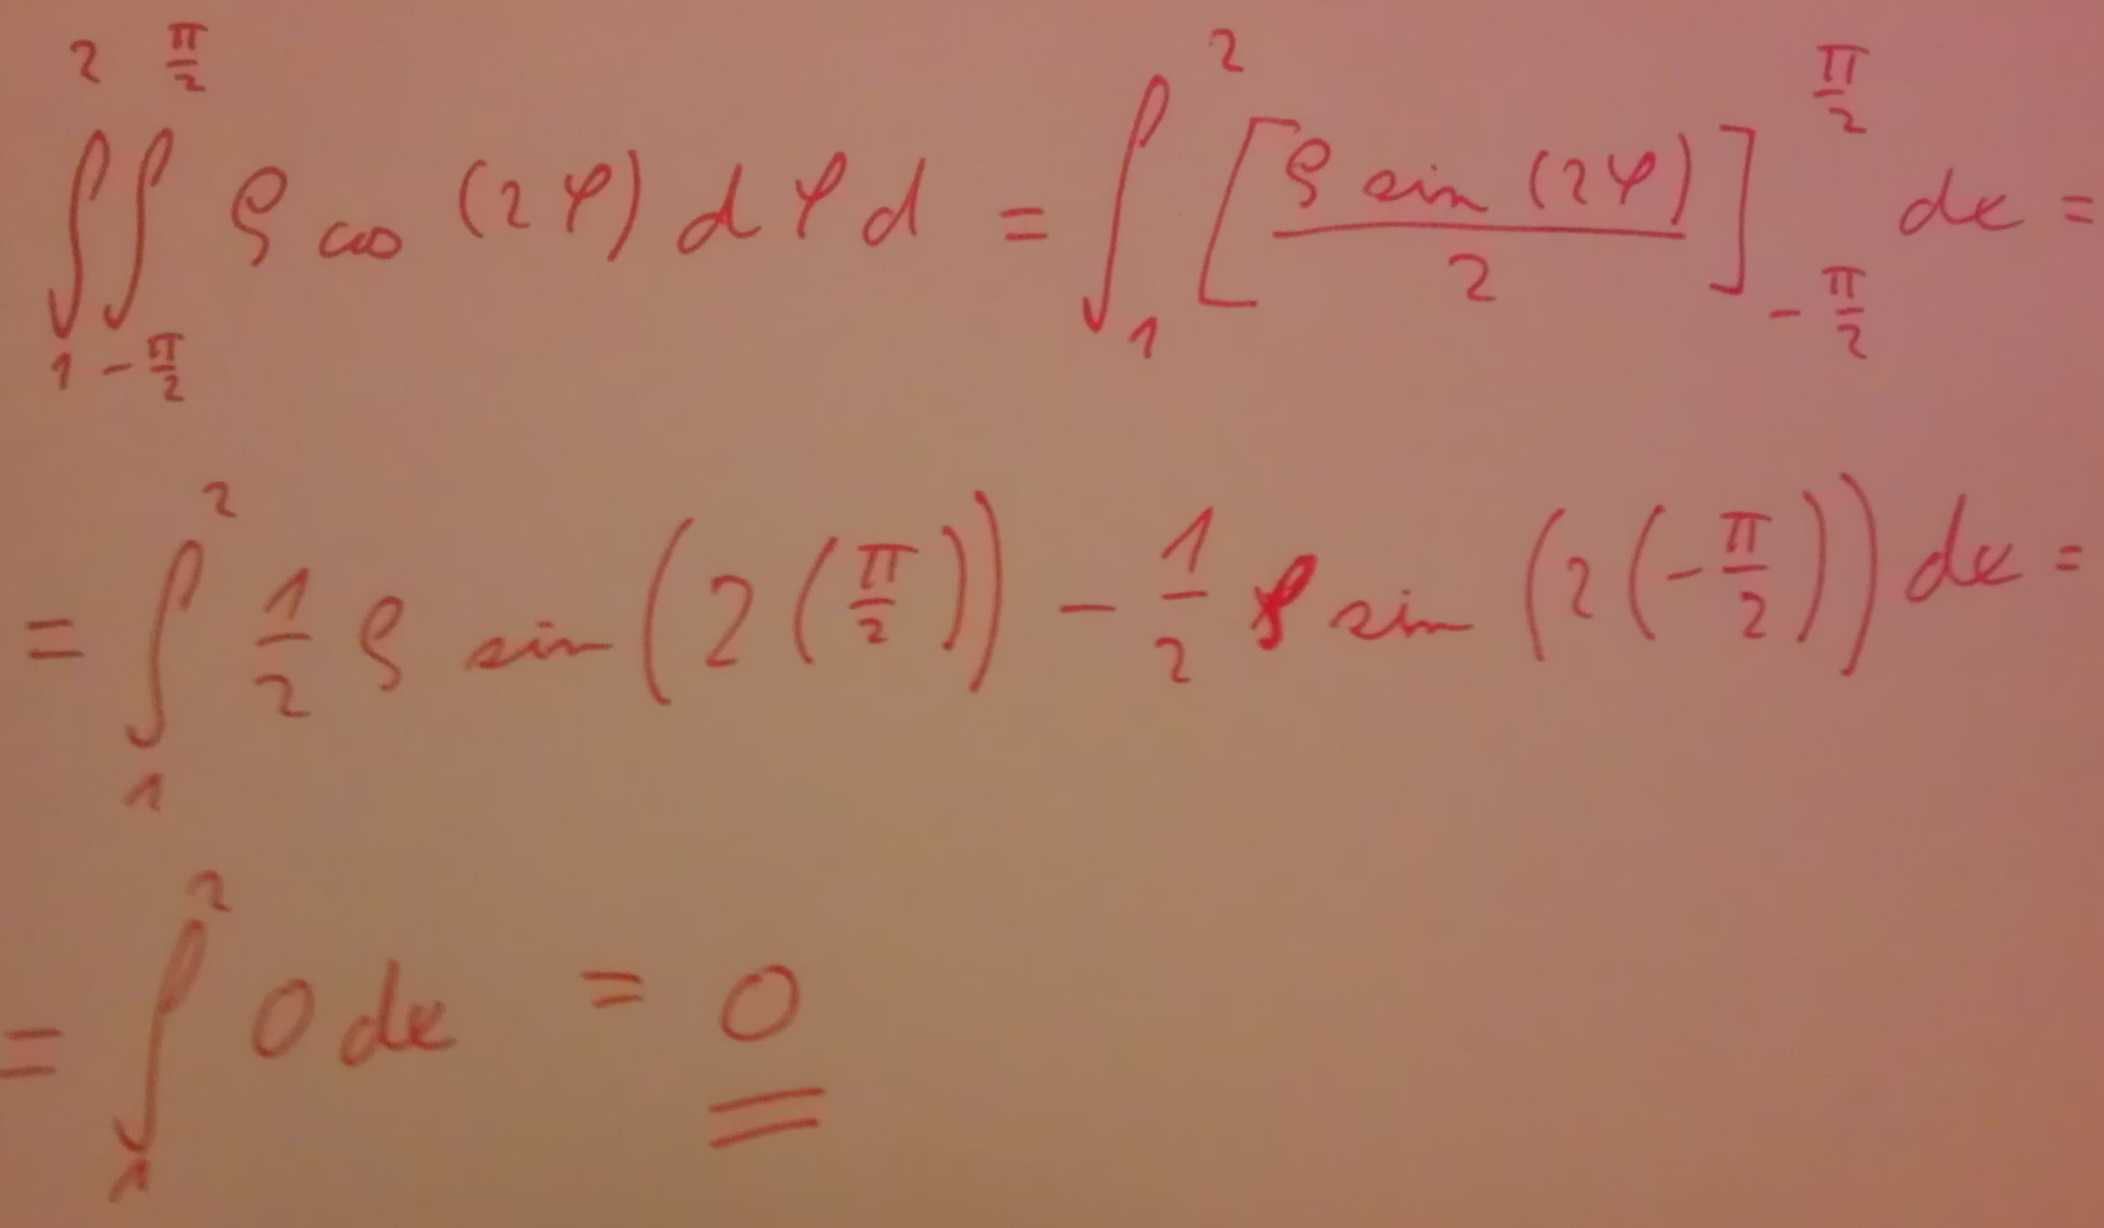 ∫₁² ∫_{-π/2}^{π/2} ρ cos (2φ) dφ d = ∫₁² [ρ sin (2φ) / 2]_{-π/2}^{π/2} dx =
= ∫₁² 1/2 ρ sin (2 (π/2)) - 1/2 ρ sin (2 (-π/2)) dx =
= ∫₁² 0 dx = 0